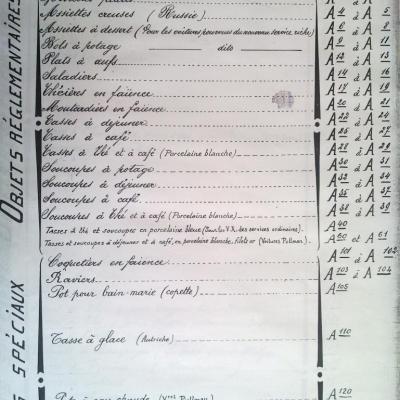 Assiettes creuses (Russie) A 4 à A 5
Assiettes à dessert (Pour les voitures pourvues du nouveau service riche) A 6 à A 8
Bols à potage dito A 9 à A 11
Plats à œufs A 12 à A 13
Saladiers A 14 à A 16
Théières en faïence A 17 à A 19
Moutardiers en faïence A 20 à A 21
Tasses à déjeuner A 22 à A 24
Tasses à café A 25 à A 27
Tasses à thé et à café (Porcelaine blanche) à A
Soucoupes à potage A 30 à A 31
Soucoupes à déjeuner A 32 à A 34
Soucoupes à café A 35 à A 37
Soucoupes à thé et à café (Porcelaine blanche) A 38 à A 39
Tasses à thé et soucoupes en porcelaine bleue (tous les V.R. des services ordinaires). A 40
Tasses et soucoupes à déjeuner et à café, en porcelaine blanche, filets or (Voitures Pullman) A et A 61
Coquetiers en faïence A 101 à A 102
Raviers A 103 à A 104
Pot pour bain-marie (copette) A 105
Tasse à glace (Autriche) A 110
A 120
OBJETS RÉGLEMENTAIRES
SPÉCIAUX